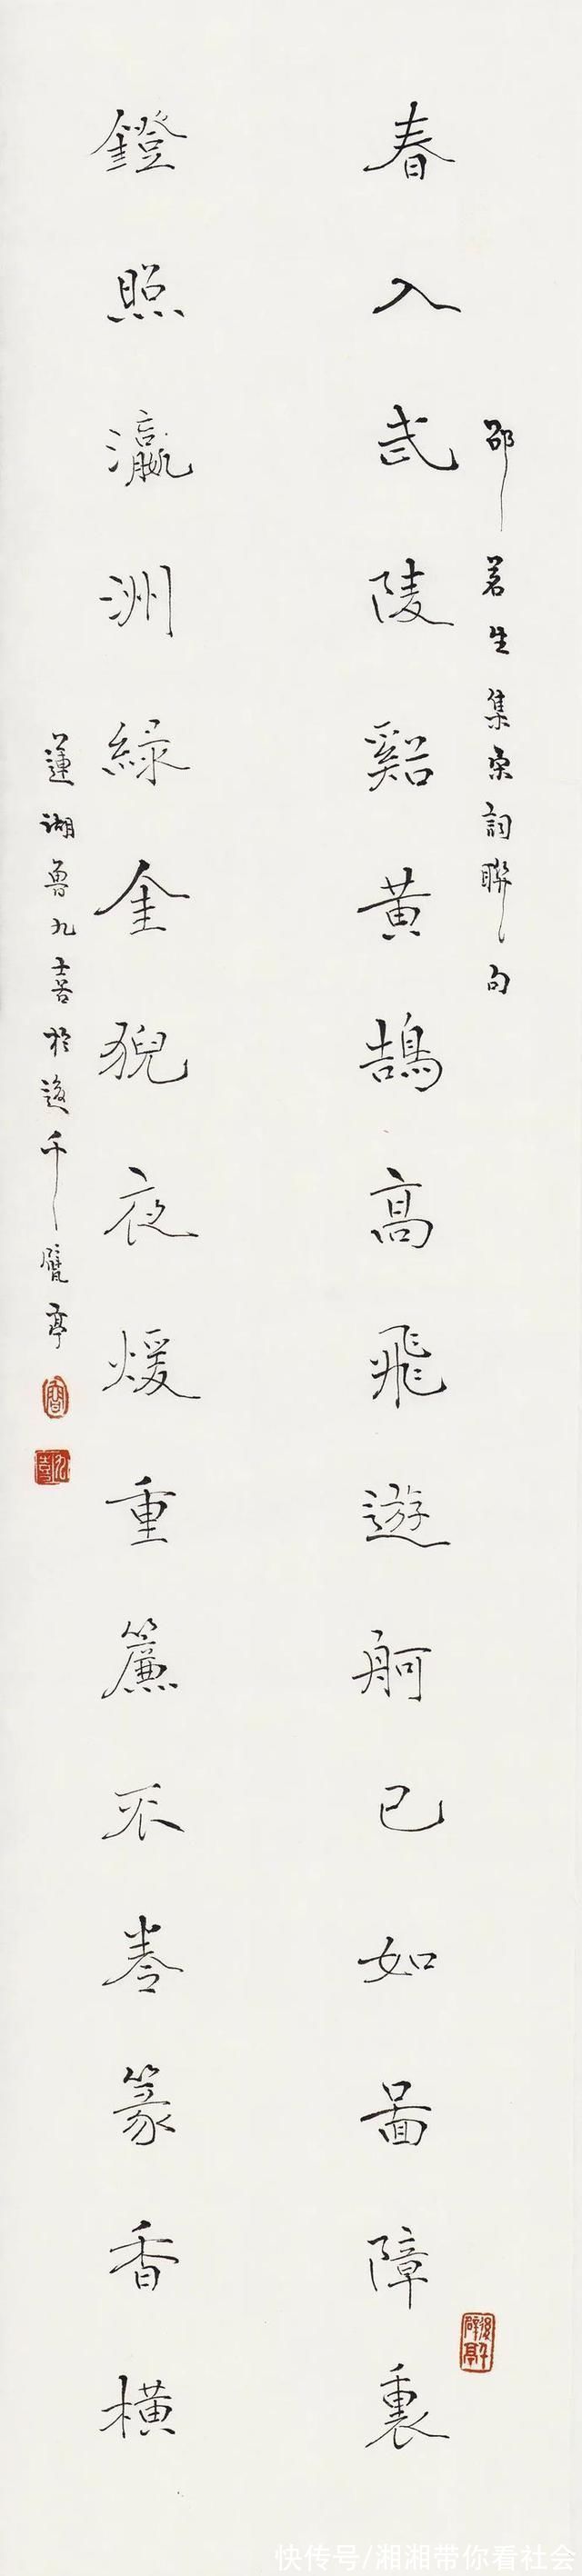 邵茗生集宋詞聯句
春入武陵谿黄鵠高飛遊舸已如啚障裏
鐙照瀛洲緑金猊夜煖重簾不卷篆香横
蓮湖魯九喜於後千甓亭
後千甓亭
快传号/湘湘带你看社会